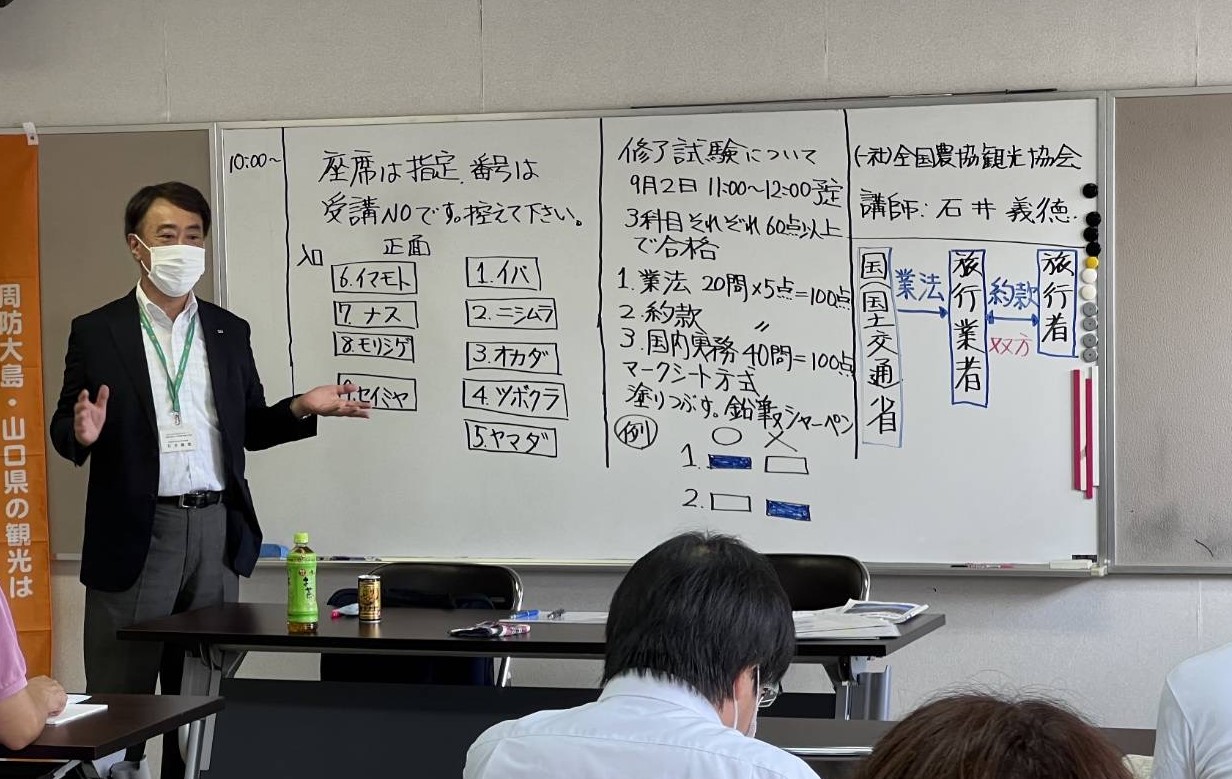 周防大島・山口県の観光は
10:00~
座席は指定.番号は
受講NOです。控えて下さい。
入口
正面
6.イマモト
7.ナス
8.モリシゲ
9.セイミヤ
1.イバ
2.ニシムラ
3.オカダ
4.ツボクラ
5.ヤマダ
修了試験について
9月2日 11:00~12:00予定
3科目それぞれ60点以上
で合格
1.業法 20問×5点=100点
2.約款 〃
3.国内実務 40問=100点
マークシート方式
塗りつぶす。鉛筆又シャーペン
例
○ ×
1.
2.
(一社)全国農協観光協会
講師:石井義徳.
国(国土交通省
業法
旅行業者
約款
双方
旅行者